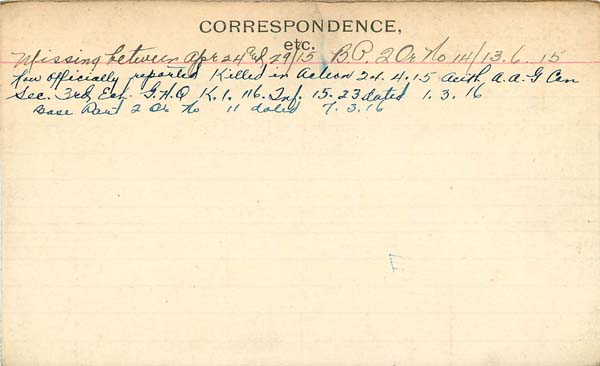 CORRESPONDENCE,
etc.
Missing between Apr 24 & 29/15 B.P. 2 Or No 14/13.6.15
Now officially reported Killed in Action 24.4.15 Auth A.A.G Can
Sec. 3rd Ech. G.H.Q K.1.116. Inf. 15.23 dated 1.3.16
Base Part 2 Or No 11 dated 7.3.16